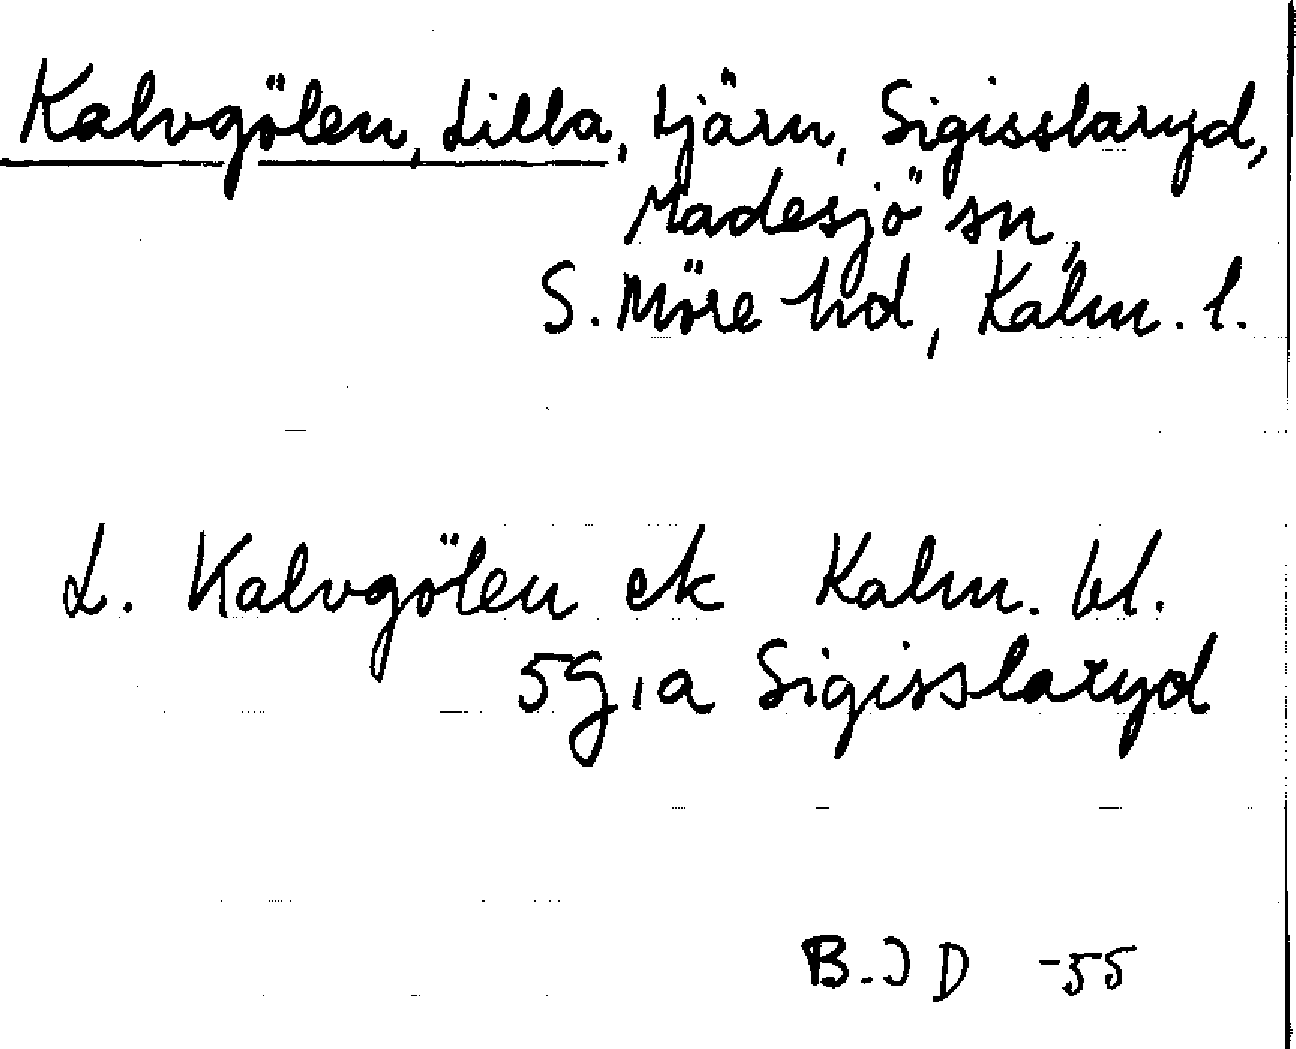 Kalvgölen, Lilla, tjärn, Sigisslaryd,
Madesjö sn,
S. Möre hd, Kalm. l.
L. Kalvgölen ek Kalm. bl.
5g, a Sigisslaryd
B.ID -55